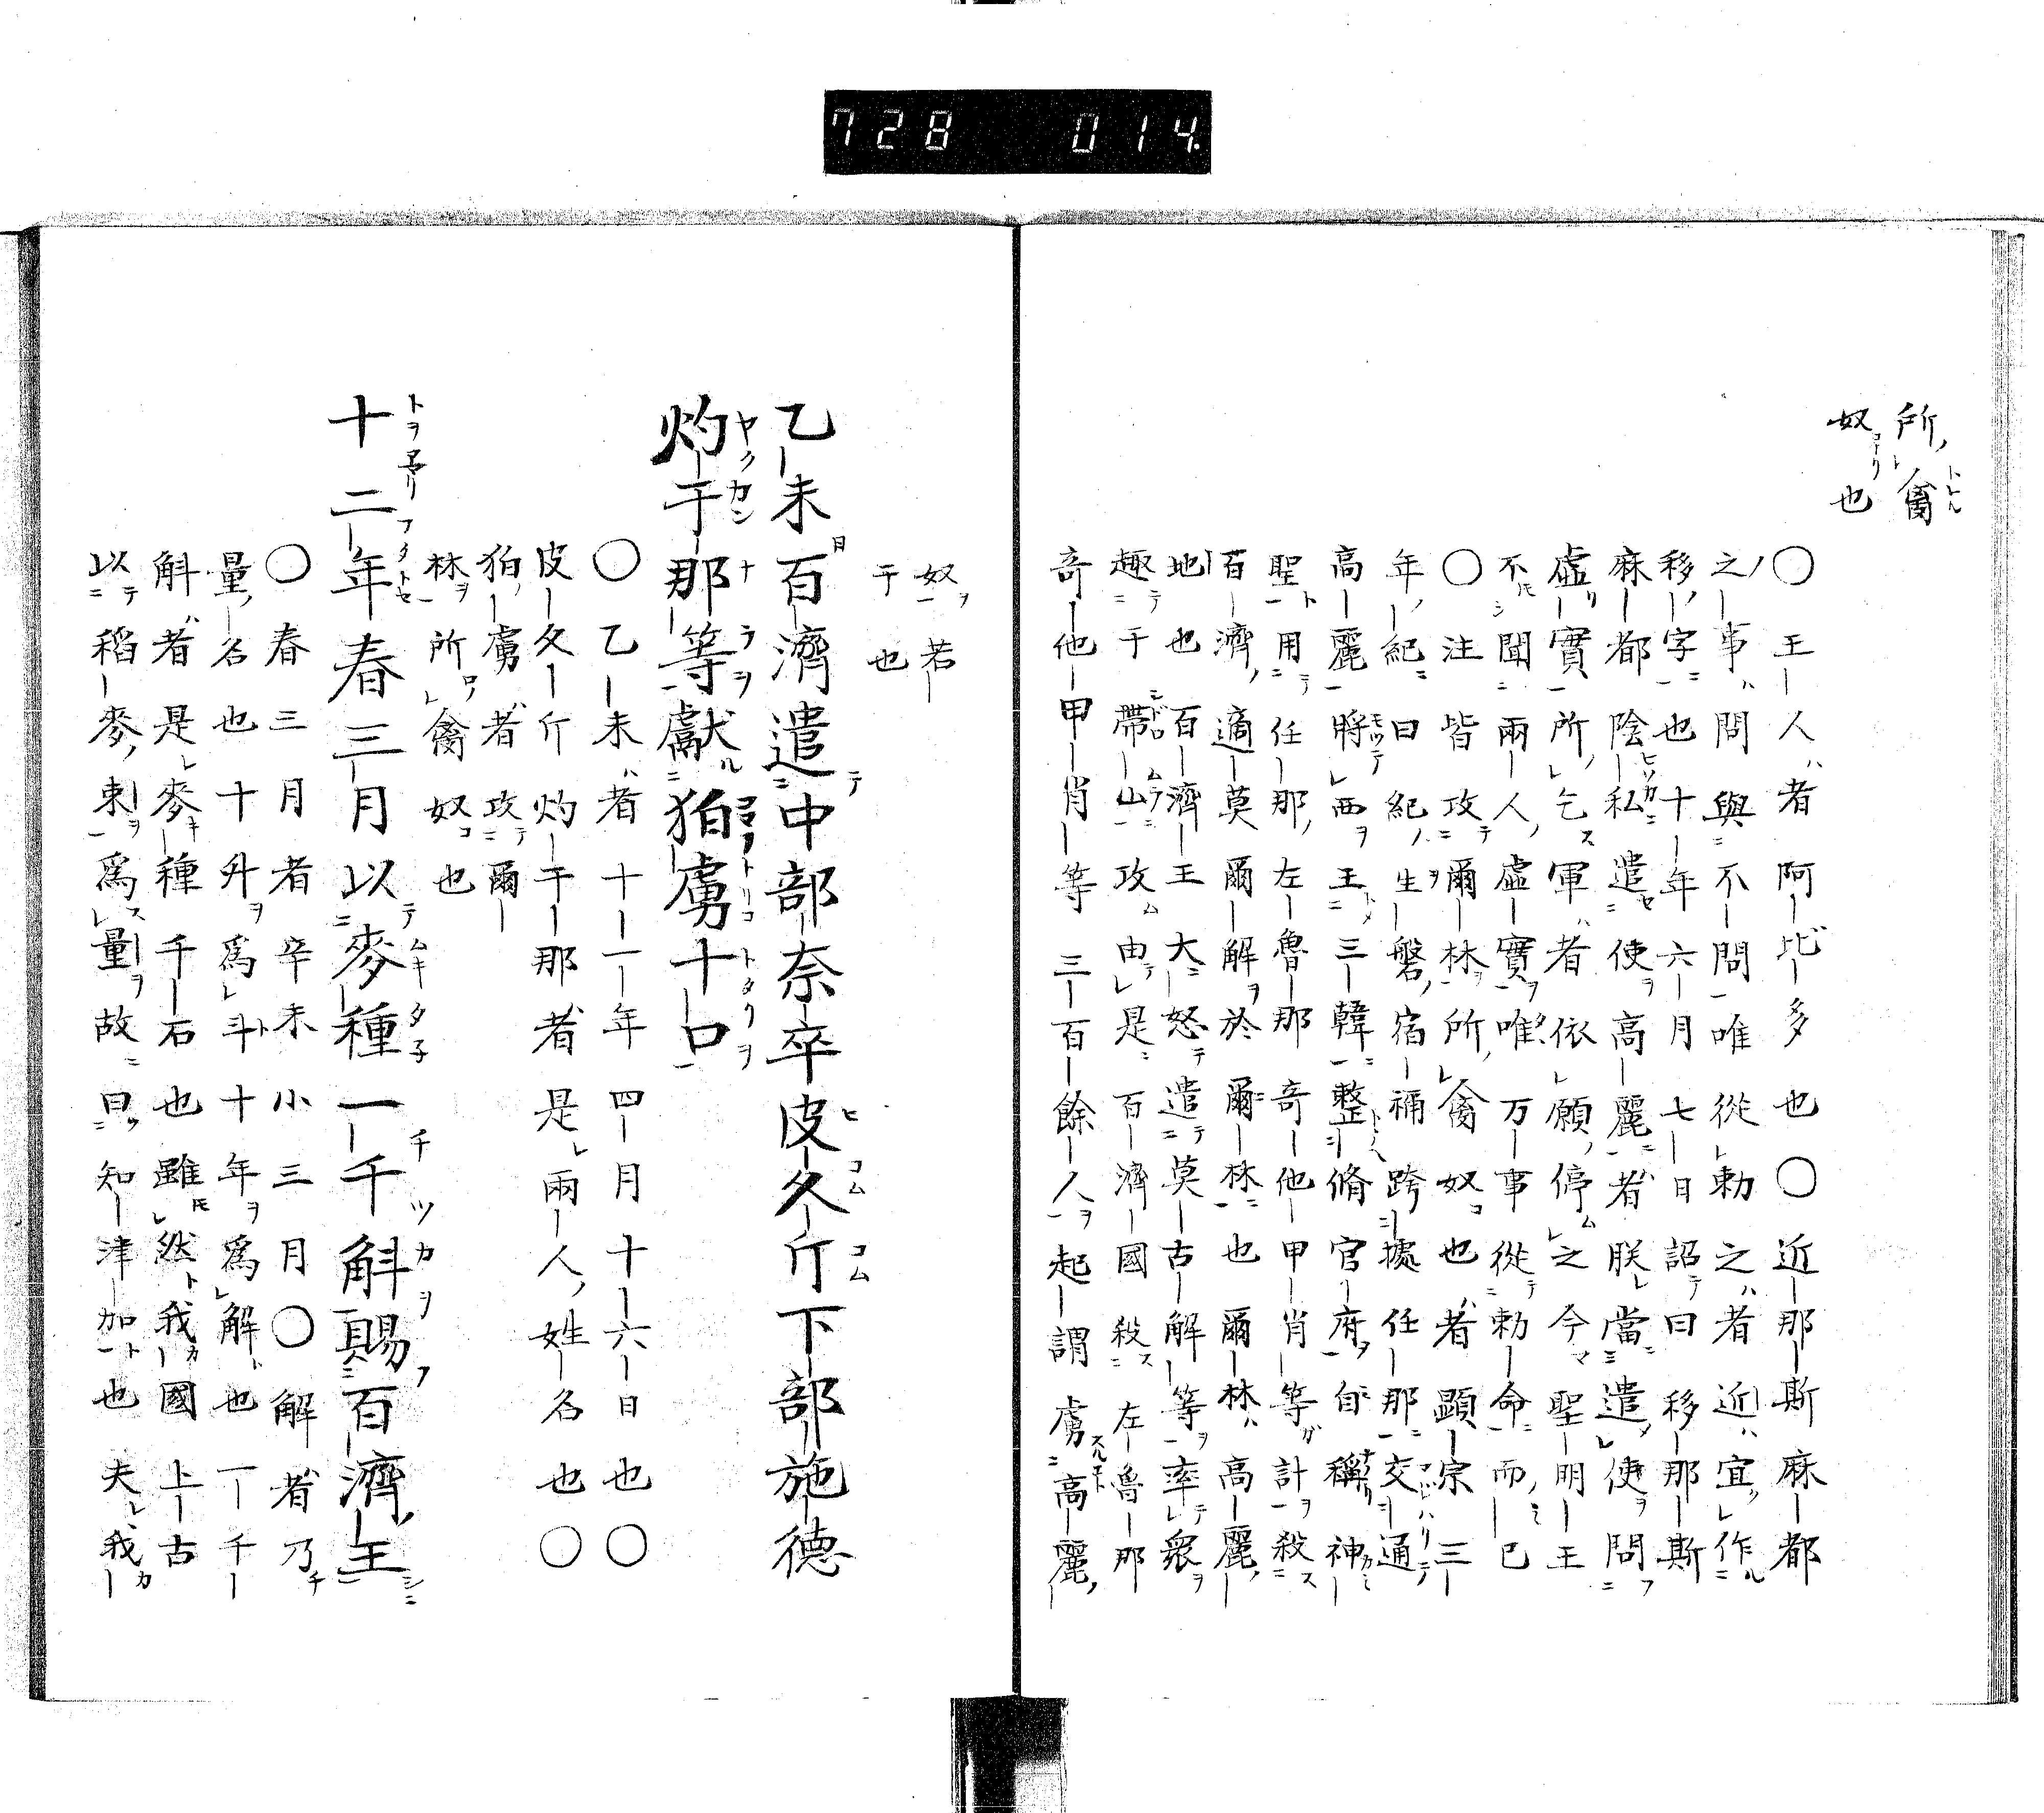 728 014
所禽
奴也
○王人者阿比多也○近那斯麻都
之事問與不問唯從勅之者近宜作
移字也十年六月七日詔曰移那斯
麻都陰私遣使高麗者朕當遣使問
虛實所乞軍者依願停之今聖明王
不聞兩人虛實唯万事從勅命而已
○注皆攻爾林所禽奴也者顯宗三
年紀曰紀生磐宿祢跨據任那交通
高麗將西王三韓整脩官府自稱神
聖用任那左魯那奇他甲肖等計殺
百濟適莫爾解於爾林也爾林高麗
地也百濟王大怒遣莫古解等率衆
趣于帶山攻由是百濟國殺左魯那
奇他甲肖等三百餘人起謂虜高麗
奴若
干也
乙未百濟遣中部奈卒皮久斤下部施德
灼干那等獻狛虜十口
○乙未者十一年四月十六日也○
皮久斤灼干那者是兩人姓名也○
狛虜者攻爾
林所禽奴也
十二年春三月以麥種一千斛賜百濟王
○春三月者辛未小三月○解者乃
量名也十升爲斗十年爲解也一千
斛者是麥種千石也雖然我國上古
以稻麥束爲量故曰知津加也夫我